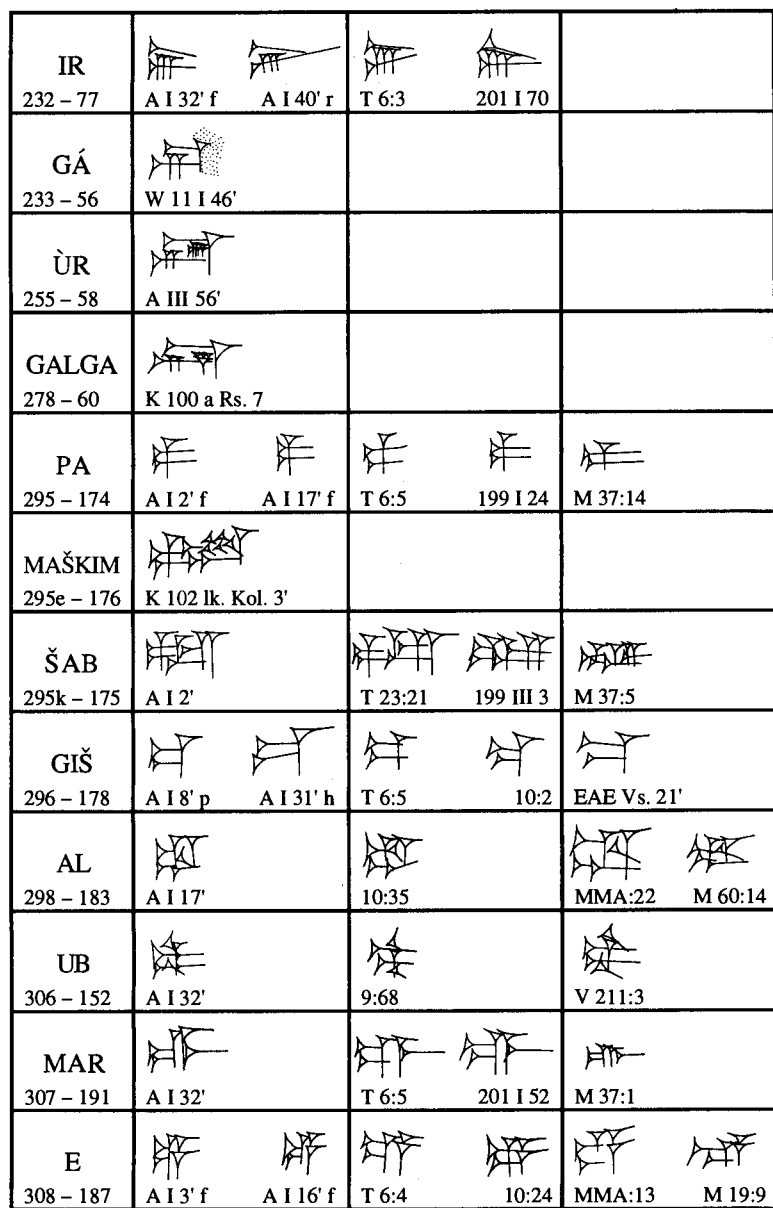 IR
232 – 77
A I 32' f A I 40' r
T 6:3 201 I 70
GÁ
233 – 56
W 11 I 46'
ÙR
255 – 58
A III 56'
GALGA
278 – 60
K 100 a Rs. 7
PA
295 – 174
A I 2' f A I 17' f
T 6:5 199 I 24
M 37:14
MAŠKIM
295e – 176
K 102 lk. Kol. 3'
ŠAB
295k – 175
A I 2'
T 23:21 199 III 3
M 37:5
GIŠ
296 – 178
A I 8' p A I 31' h
T 6:5 10:2
EAE Vs. 21'
AL
298 – 183
A I 17'
10:35
MMA:22 M 60:14
UB
306 – 152
A I 32'
9:68
V 211:3
MAR
307 – 191
A I 32'
T 6:5 201 I 52
M 37:1
E
308 – 187
A I 3' f A I 16' f
T 6:4 10:24
MMA:13 M 19:9